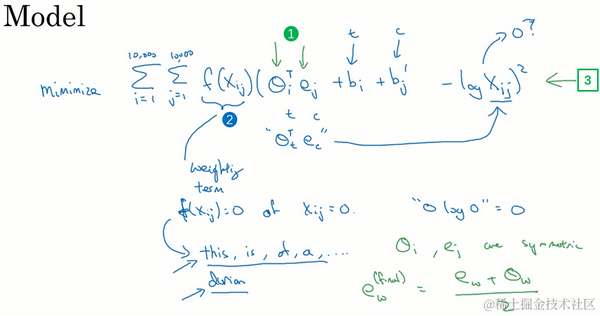 Model
t c 0?
minimize 10,000 Σ i=1 10,000 Σ j=1 f(Xij) ( θiᵀ ej + bi + bj' - log Xij )² ← 3
1
2
t c
"θtᵀ ec"
weighting
term
f(Xij)=0 if Xij=0. "0 log 0" = 0
this, is, of, a, .... θi, ej are symmetric
durian
ew(final) = ew + θw / 2
@稀土掘金技术社区